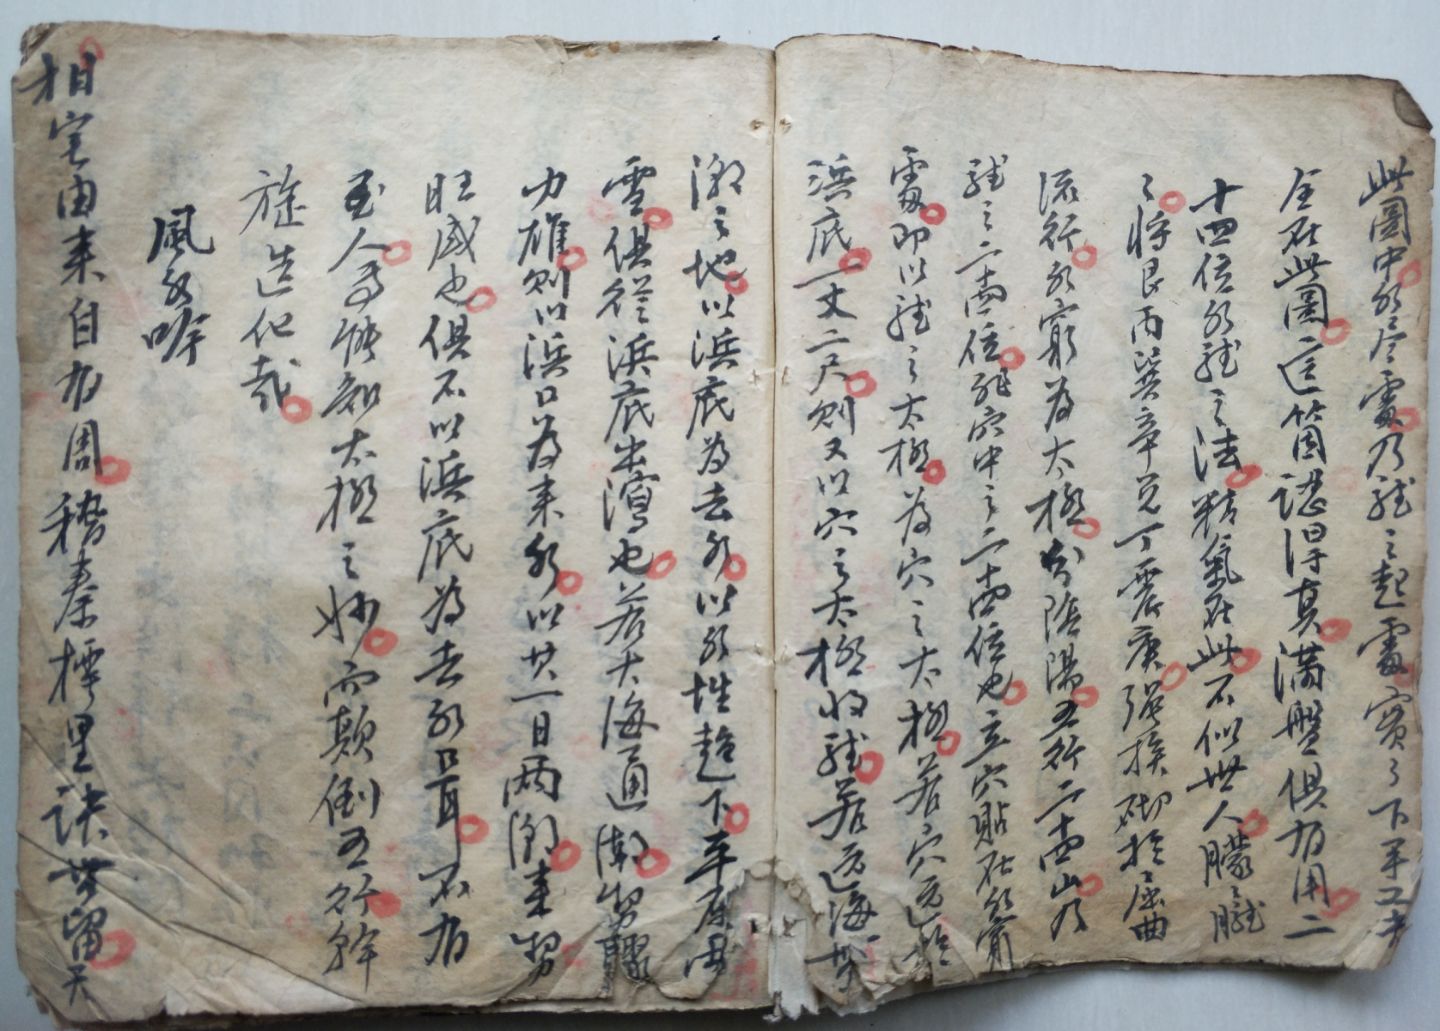 此圖中水尽處乃龍之起處實了下手工夫
全在此圖這箇認得真滿盤俱有用二
十四位水龍之法精氣在此不似世人朦之朧
之將艮丙巽辛兌丁震庚强挨砌于屈曲
流行水窮為太極分陰陽五行二十四山乃
龍之二十四位非穴中之二十四位也立穴貼在水窮
處即以龍之太極為穴之太極若穴遠于
浜底一丈二尺則又以穴之太極收龍若近海带
潮之地以浜底為去水以水性趋下平原
雪俱從浜底出濱也若大海通潮势驟
力雄則以浜口為来水以其一日两潮来势
旺盛也俱不以浜底為去水口耳不有
至人烏能知太極之妙而顛倒五行幹
旋造化哉
風水吟
相宅由来自有周稽秦樗里訣世留天